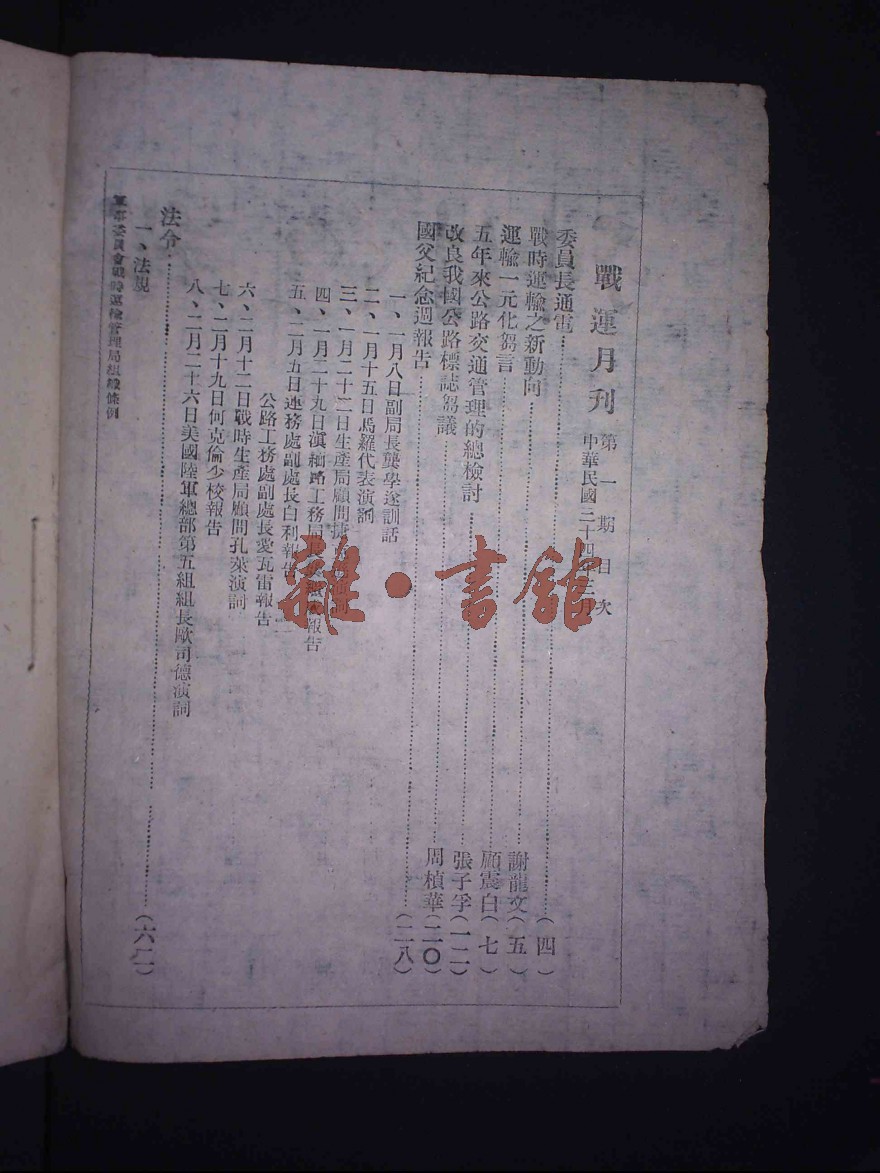 戰運月刊
第一期目次
中華民國三十四年三月
委員長通電……(四)
戰時運輸之新動向……謝龍文(五)
運輸一元化芻言……顧震白(七)
五年來公路交通管理的總檢討……張子孚(一二)
改良我國公路標誌芻議……周楨華(二〇)
國父紀念週報告……(二八)
一、一月八日副局長龔學遂訓話
二、一月十五日馬羅代表演詞
三、一月二十二日生產局顧問演詞
四、一月二十九日滇緬路工務局長報告
五、二月五日運務處副處長白利報告
公路工務處副處長愛瓦雷報告
六、二月十二日戰時生產局顧問孔萊演詞
七、二月十九日何克倫少校報告
八、二月二十六日美國陸軍總部第五組組長歐司德演詞
法令……(六二)
一、法規
軍事委員會戰時運輸管理局組織條例
雜·書館